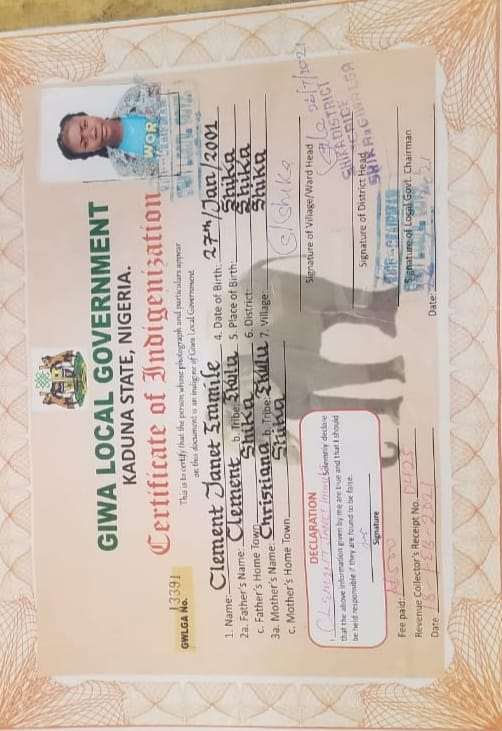 GIWA LOCAL GOVERNMENT
KADUNA STATE, NIGERIA.
Certificate of Indigenization
This is to certify that the person whose photograph and particulars appear
on this document is an indigene of Giwa Local Government.
GWLGA No. 13391
WOR
1. Name: Clement Janet Emmile 4. Date of Birth: 27th/Jan/2001
2a. Father's Name: Clement b. Tribe: Ekulu 5. Place of Birth: Shika
c. Father's Home Town Shika 6. District: Shika
3a. Mother's Name: Christiana b. Tribe: Ekulu 7. Village: Shika
c. Mother's Home Town Shika
S/Shika
Signature of Village/Ward Head
26/7/2021
DECLARATION
I, Clement Janet solemnly declare
that the above information given by me are true and that I should
be held responsible if they are found to be false.
Signature
SHIKA DISTRICT
Signature of District Head
Fee paid:
Revenue Collector's Receipt No.
Date
Signature of Local Govt. Chairman
Date: